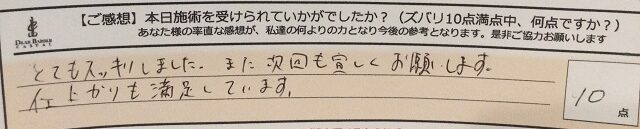 【ご感想】本日施術を受けられていかがでしたか？（ズバリ10点満点中、何点ですか？）
あなた様の率直な感想が、私達の何よりの力となり今後の参考となります。是非ご協力お願いします
DEAR BARBER
とてもスッキリしました。また次回も宜しくお願いします。
仕上がりも満足しています。
10
点